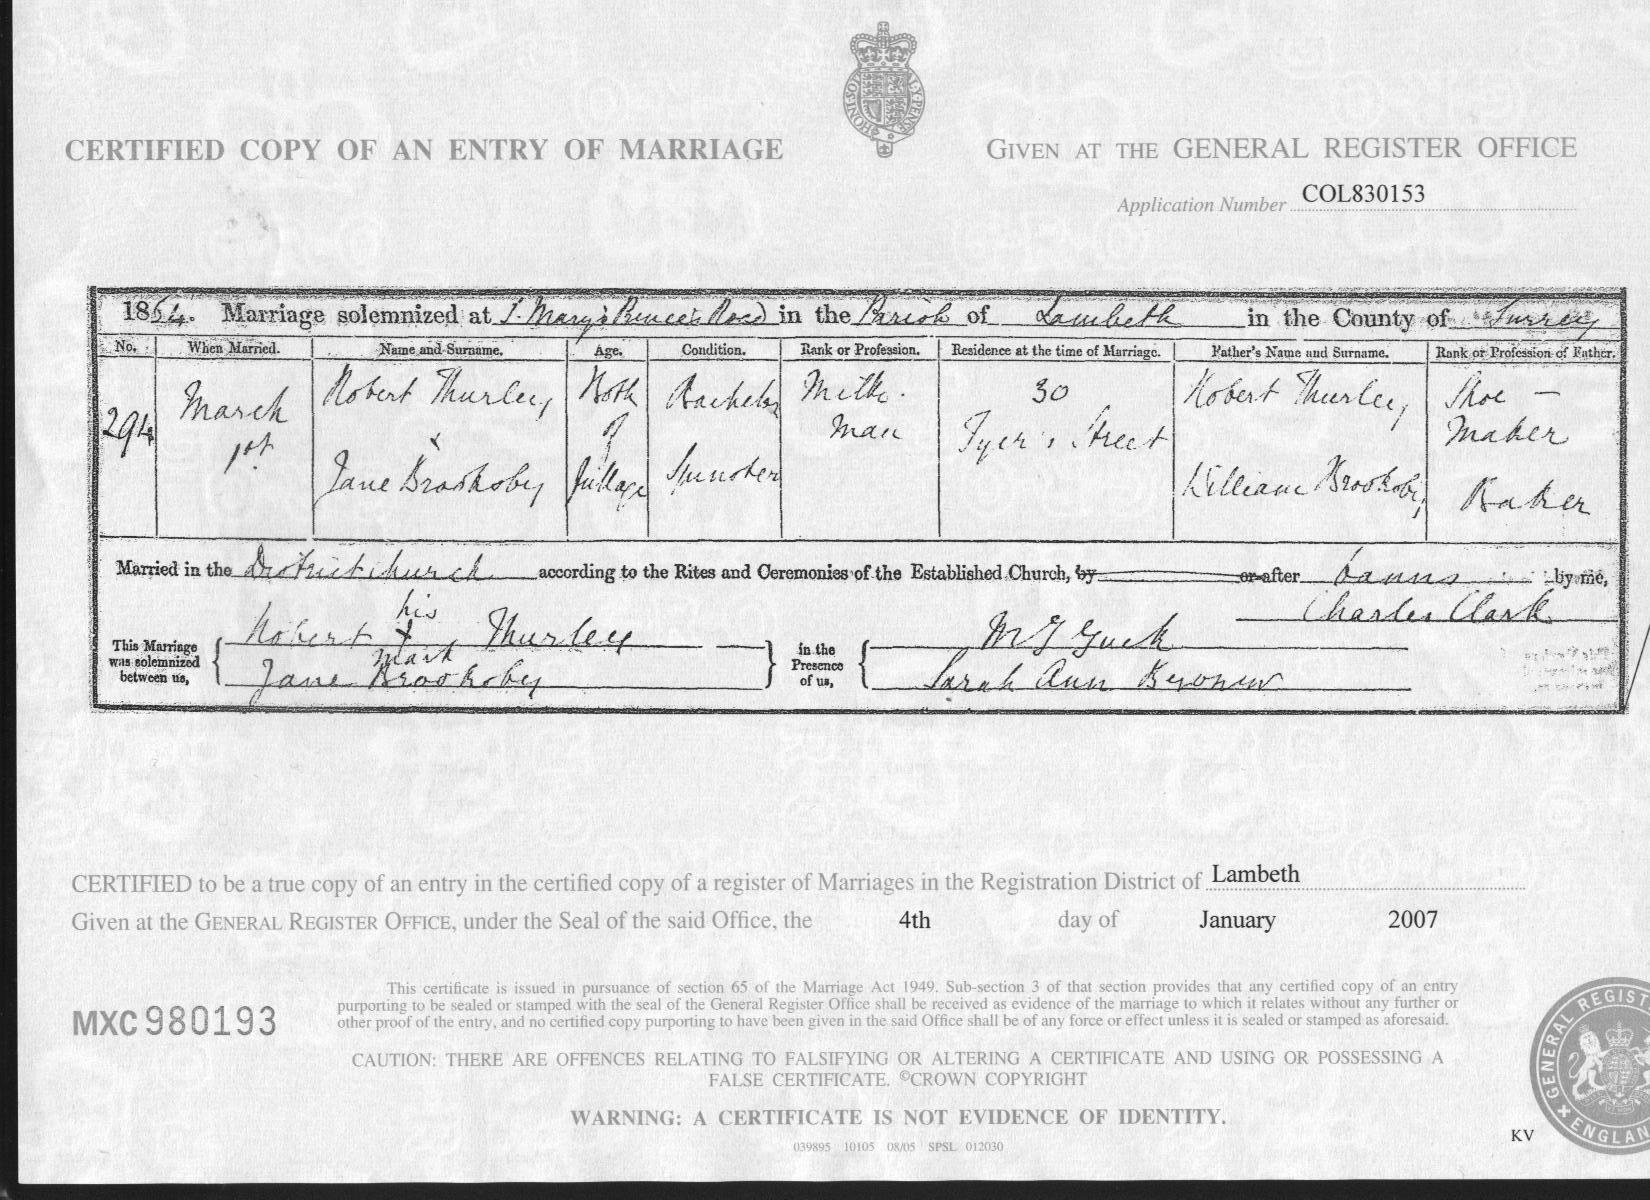 CERTIFIED COPY OF AN ENTRY OF MARRIAGE
GIVEN AT THE GENERAL REGISTER OFFICE
Application Number COL830153
1854. Marriage solemnized at S. Mary's Prince's Road in the Parish of Lambeth in the County of Surrey
No. When Married. Name and Surname. Age. Condition. Rank or Profession. Residence at the time of Marriage. Father's Name and Surname. Rank or Profession of Father.
294 March 1st Robert Thurley Both of full age Bachelor Milkman 30 Tyer's Street Robert Thurley Shoe-Maker
&
Jane Brooksby Spinster William Brooksby Baker
Married in the District church according to the Rites and Ceremonies of the Established Church, by or after banns by me,
Charles Clark
This Marriage was solemnized between us,
Robert his X mark Thurley
Jane Brooksby
in the Presence of us,
Sarah Ann
CERTIFIED to be a true copy of an entry in the certified copy of a register of Marriages in the Registration District of Lambeth
Given at the GENERAL REGISTER OFFICE, under the Seal of the said Office, the 4th day of January 2007
MXC 980193
This certificate is issued in pursuance of section 65 of the Marriage Act 1949. Sub-section 3 of that section provides that any certified copy of an entry
purporting to be sealed or stamped with the seal of the General Register Office shall be received as evidence of the marriage to which it relates without any further or
other proof of the entry, and no certified copy purporting to have been given in the said Office shall be of any force or effect unless it is sealed or stamped as aforesaid.
CAUTION: THERE ARE OFFENCES RELATING TO FALSIFYING OR ALTERING A CERTIFICATE AND USING OR POSSESSING A
FALSE CERTIFICATE. ©CROWN COPYRIGHT
WARNING: A CERTIFICATE IS NOT EVIDENCE OF IDENTITY.
039895 10105 08/05 SPSL 012030
KV
GENERAL REGIST
ENGLAN